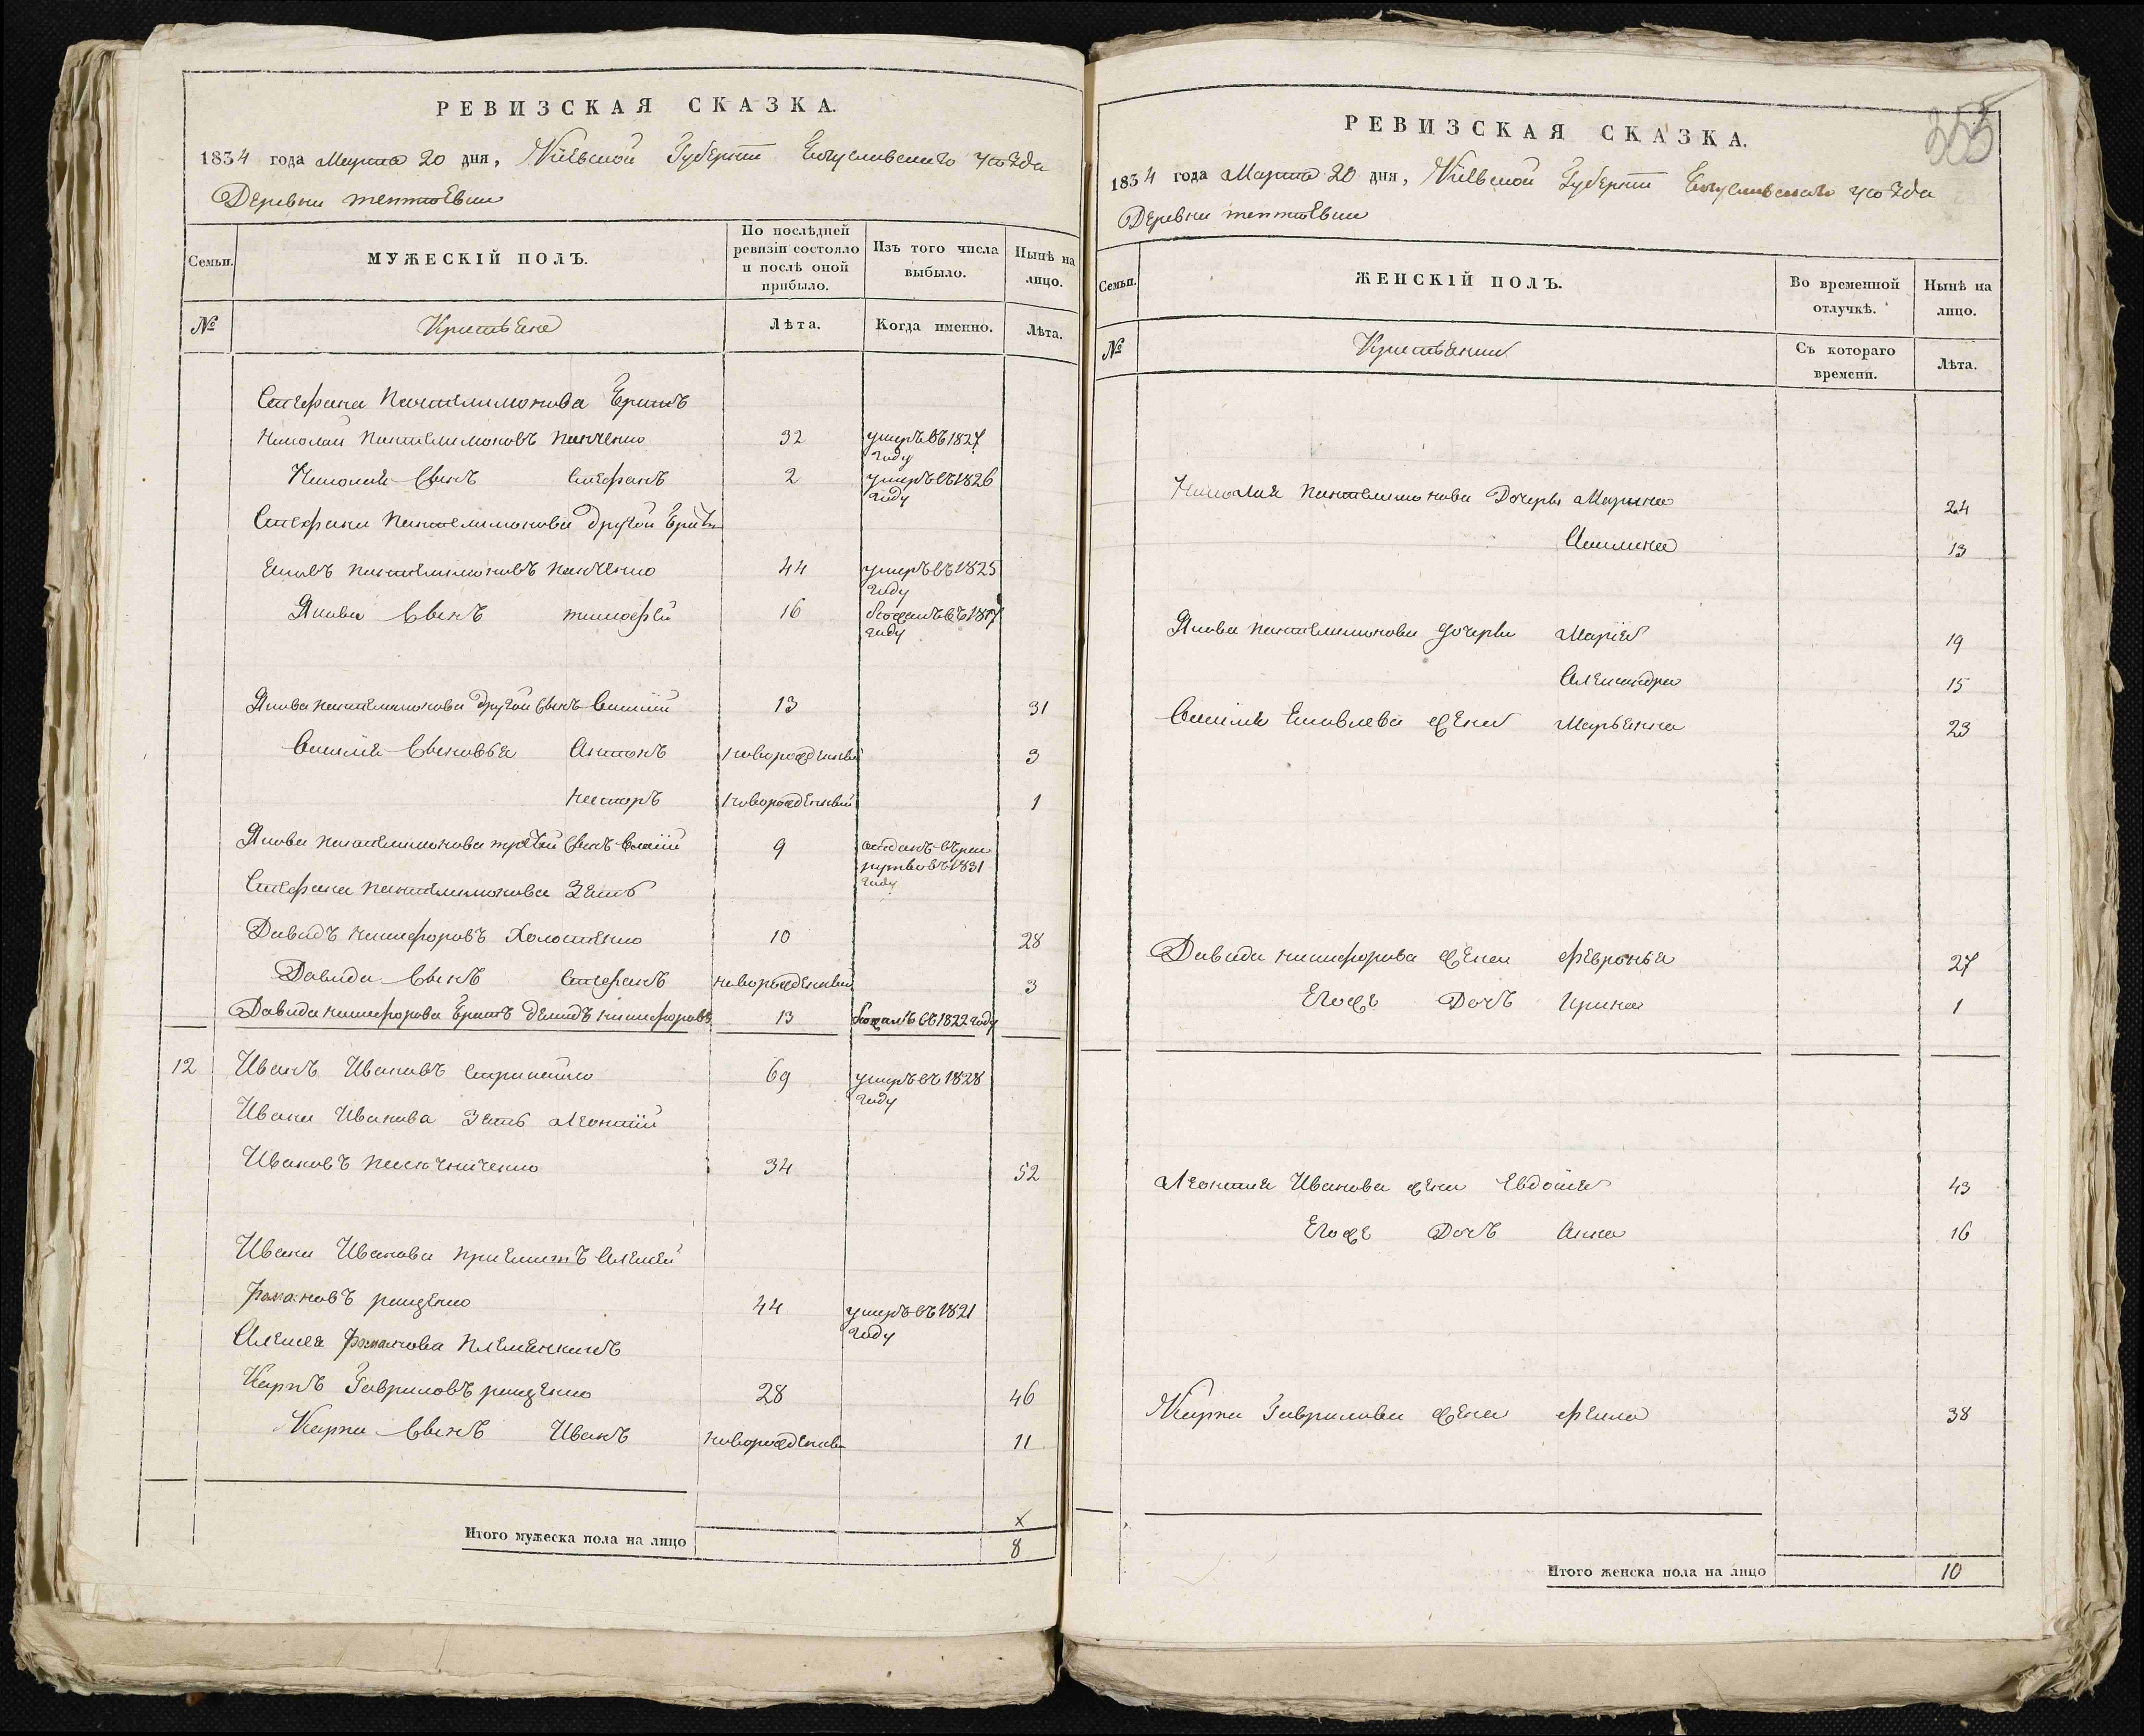 РЕВИЗСКАЯ СКАЗКА.
1834 года Марта 20 дня, Кіевской Губерніи Богуславского уѣзда
Деревни Тептіевки
Семьи.
МУЖЕСКІЙ ПОЛЪ.
По послѣдней ревизіи состояло и послѣ оной прибыло.
Изъ того числа выбыло.
Нынѣ на лицо.
№
Крестьяне
Лѣта.
Когда именно.
Лѣта.
Стефана Пантелимонова братъ
Николай Пантелимоновъ Панченко 32 умеръ въ 1827 году
Николая Сынъ Стефанъ 2 умеръ въ 1826 году
Стефана Пантелимонова другой братъ
Яковъ Пантелимоновъ Панченко 44 умеръ въ 1825 году
Якова Сынъ Тимофей 16 бѣжалъ въ 1817 году
Якова Пантелимонова другой Сынъ Василій 13 31
Василія Сыновья Антонъ новорожденный 3
Несторъ новорожденный 1
Якова Пантелимонова третій Сынъ Власій 9 отданъ въ рекруты въ 1831 году
Стефана Пантелимонова Зять
Давидъ Никифоровъ Холостенко 10 28
Давида Сынъ Стефанъ новорожденный 3
Давида Никифорова братъ Демидъ Никифоровъ 13 бѣжалъ въ 1822 году
12 Иванъ Ивановъ 69 умеръ въ 1828 году
Ивана Иванова Зять Леонтій
Ивановъ 34 52
Ивана Иванова пріемышъ Алексѣй
Романовъ 44 умеръ въ 1821 году
Алексея Романова племянникъ
Карпъ Гавриловъ 28 46
Карпа Сынъ Иванъ новорожденны 11
Итого мужеска пола на лицо
х
8
РЕВИЗСКАЯ СКАЗКА.
353
1834 года Марта 20 дня, Кіевской Губерніи Богуславского уѣзда
Деревни Тептіевки
Семьи.
ЖЕНСКІЙ ПОЛЪ.
Во временной отлучкѣ.
Нынѣ на лицо.
№
Крестьянки
Съ котораго времени.
Лѣта.
Николая Пантелимонова Дочеры Марына 24
Акилина 13
Якова Пантелимонова Дочеры Марія 19
Александра 15
Василія Яковлева жена Марьянна 23
Давида Никифорова жена Февронья 27
Егоже Дочь Ирина 1
Леонтия Иванова жена Евдокія 43
Егоже Дочь Анна 16
Карпа Гаврилова жена Фекла 38
Итого женска пола на лицо 10